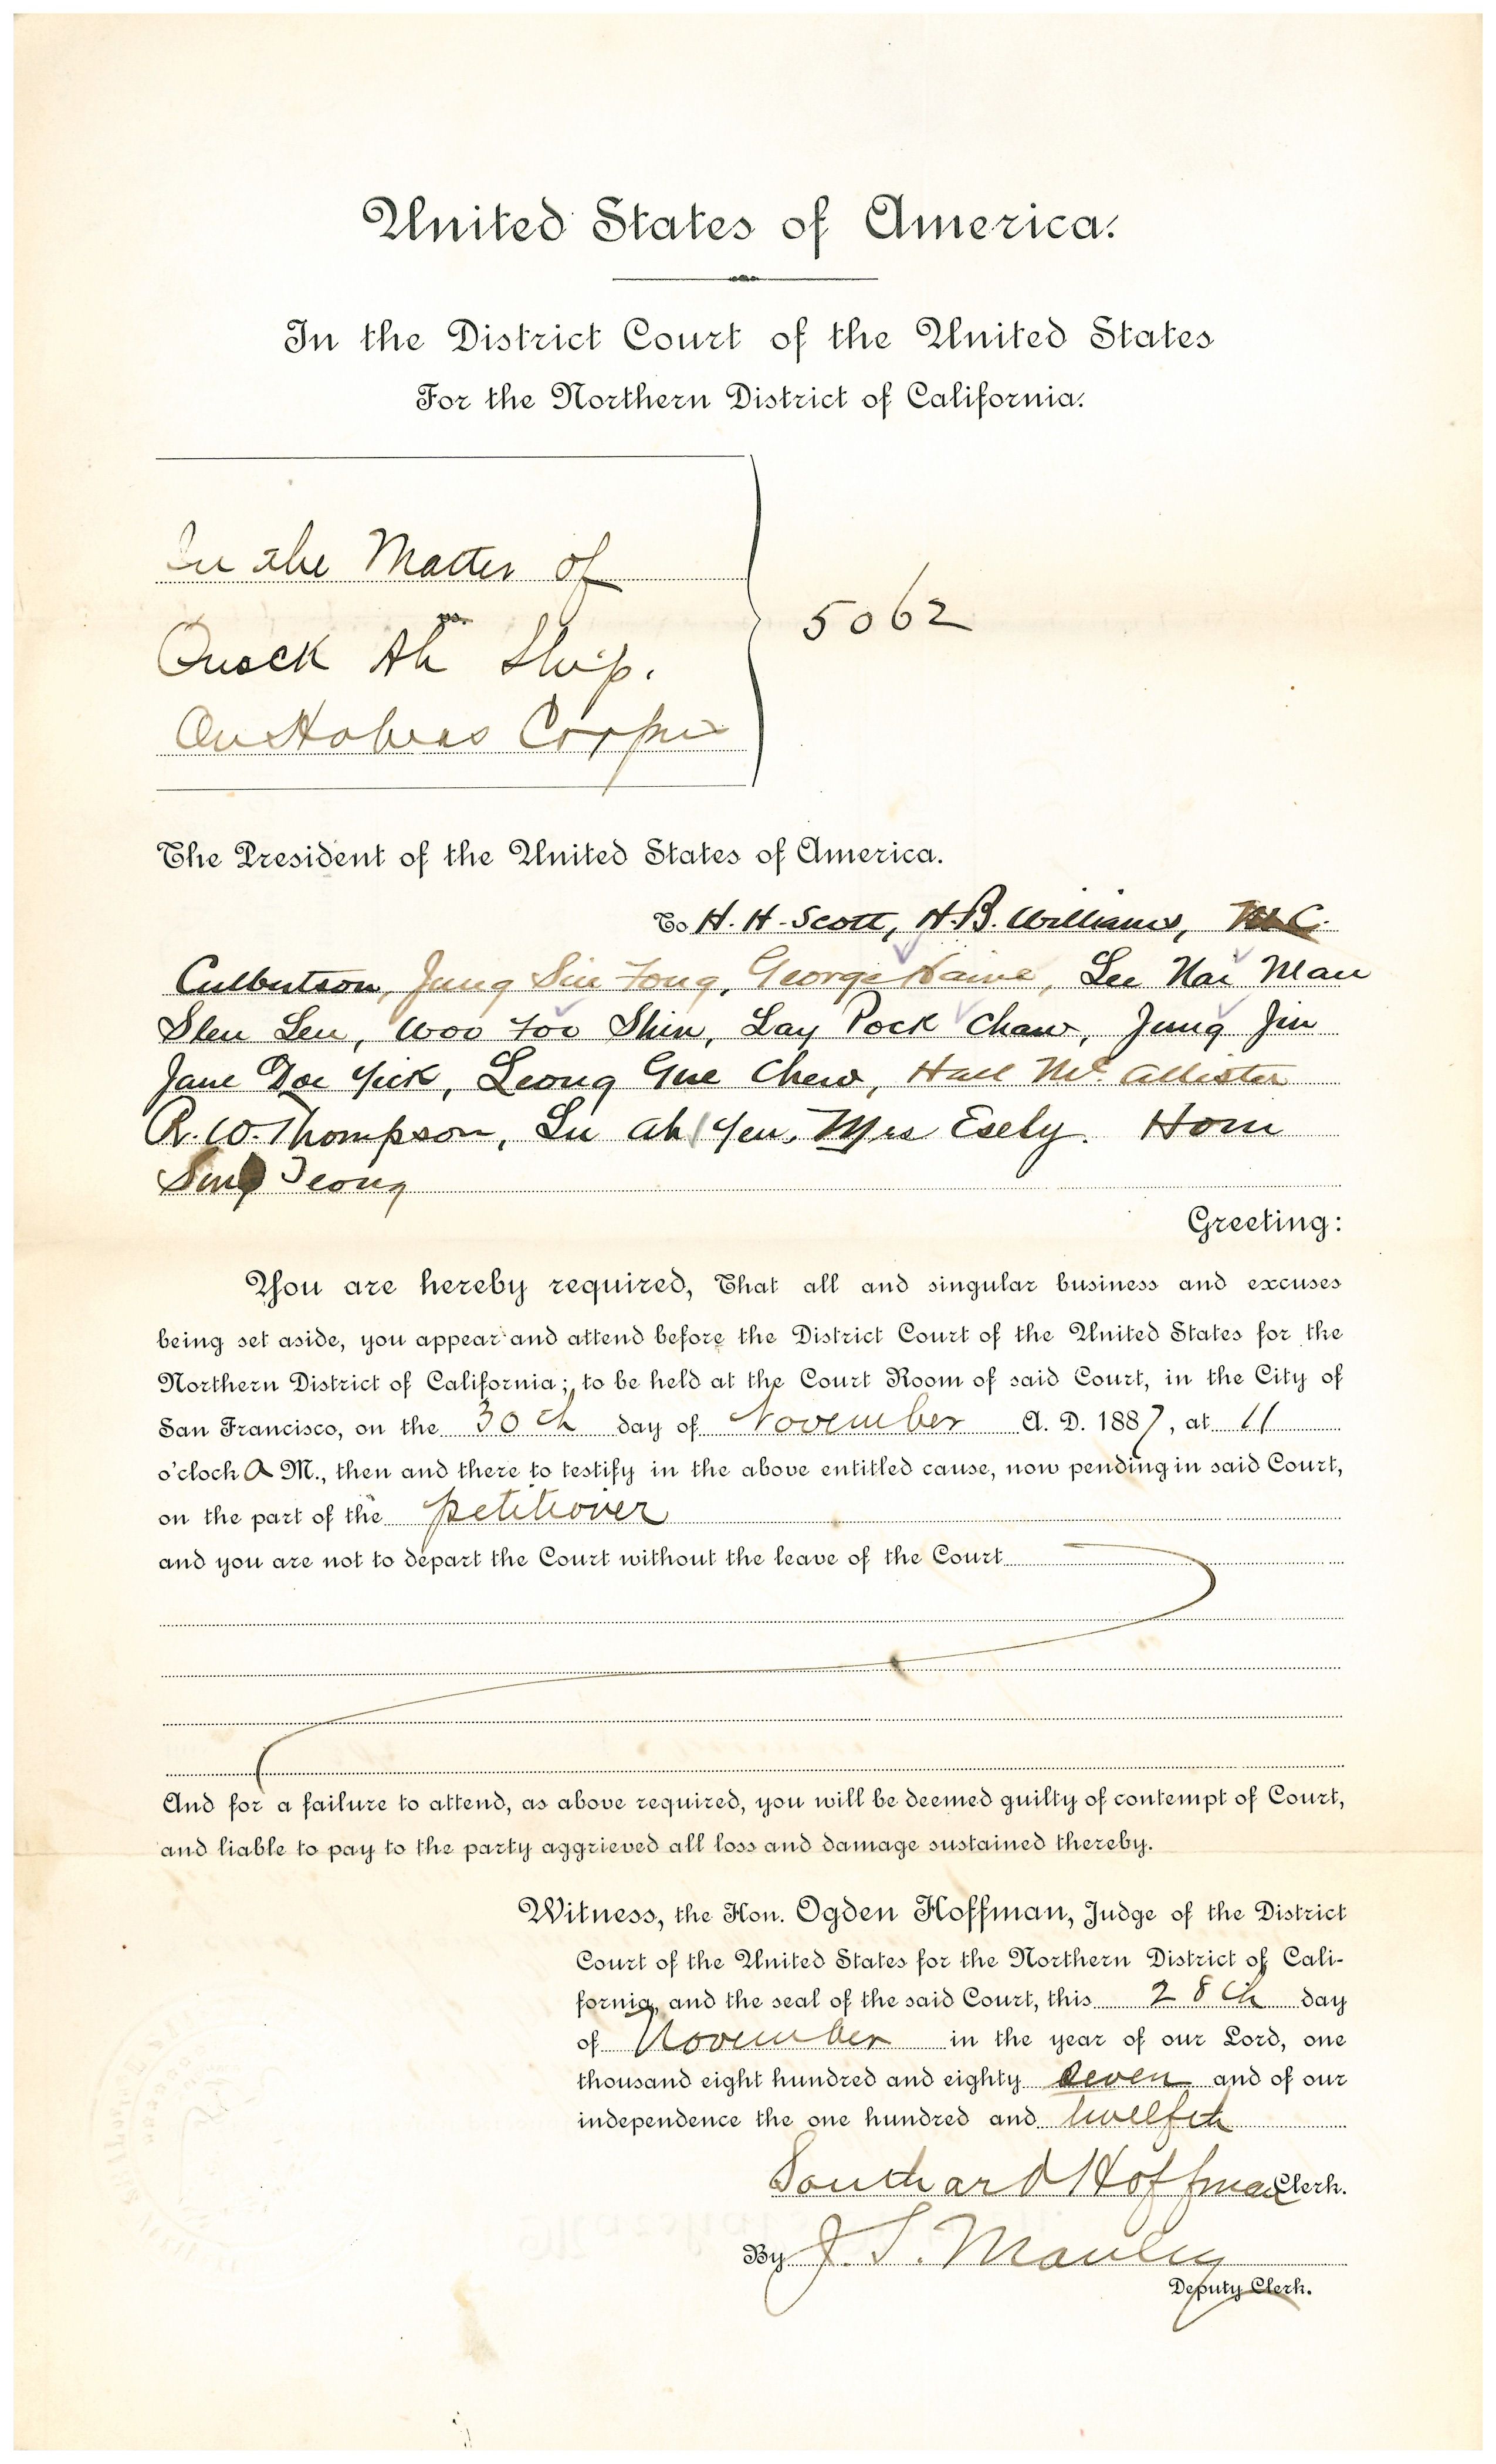 United States of America.
In the District Court of the United States
For the Northern District of California.
In the Matter of
vs.
Quock Ah Ship.
On Habeas Corpus
5062
The President of the United States of America.
To H. H. Scott, H. B. Williams,
Culbertson, Jung Sin Fong, George Haine, Lee Nai Man
Shen Len, Woo Foo Shin, Lay Pock Chaw, Jung Jin
Jane Doe Yick, Leong Gue Chew, Hall Mc. Allister
R. W. Thompson, Lu Ah Yeu, Mrs Esely. Hom
Sing Jeong
Greeting:
You are hereby required, That all and singular business and excuses
being set aside, you appear and attend before the District Court of the United States for the
Northern District of California; to be held at the Court Room of said Court, in the City of
San Francisco, on the 30th day of November A. D. 1887, at 11
o'clock A M., then and there to testify in the above entitled cause, now pending in said Court,
on the part of the petitioner
and you are not to depart the Court without the leave of the Court
And for a failure to attend, as above required, you will be deemed guilty of contempt of Court,
and liable to pay to the party aggrieved all loss and damage sustained thereby.
Witness, the Hon. Ogden Hoffman, Judge of the District
Court of the United States for the Northern District of Cali-
fornia, and the seal of the said Court, this 28th day
of November in the year of our Lord, one
thousand eight hundred and eighty seven and of our
independence the one hundred and twelfth
Southard Hoffman Clerk.
By J. S. Manley
Deputy Clerk.